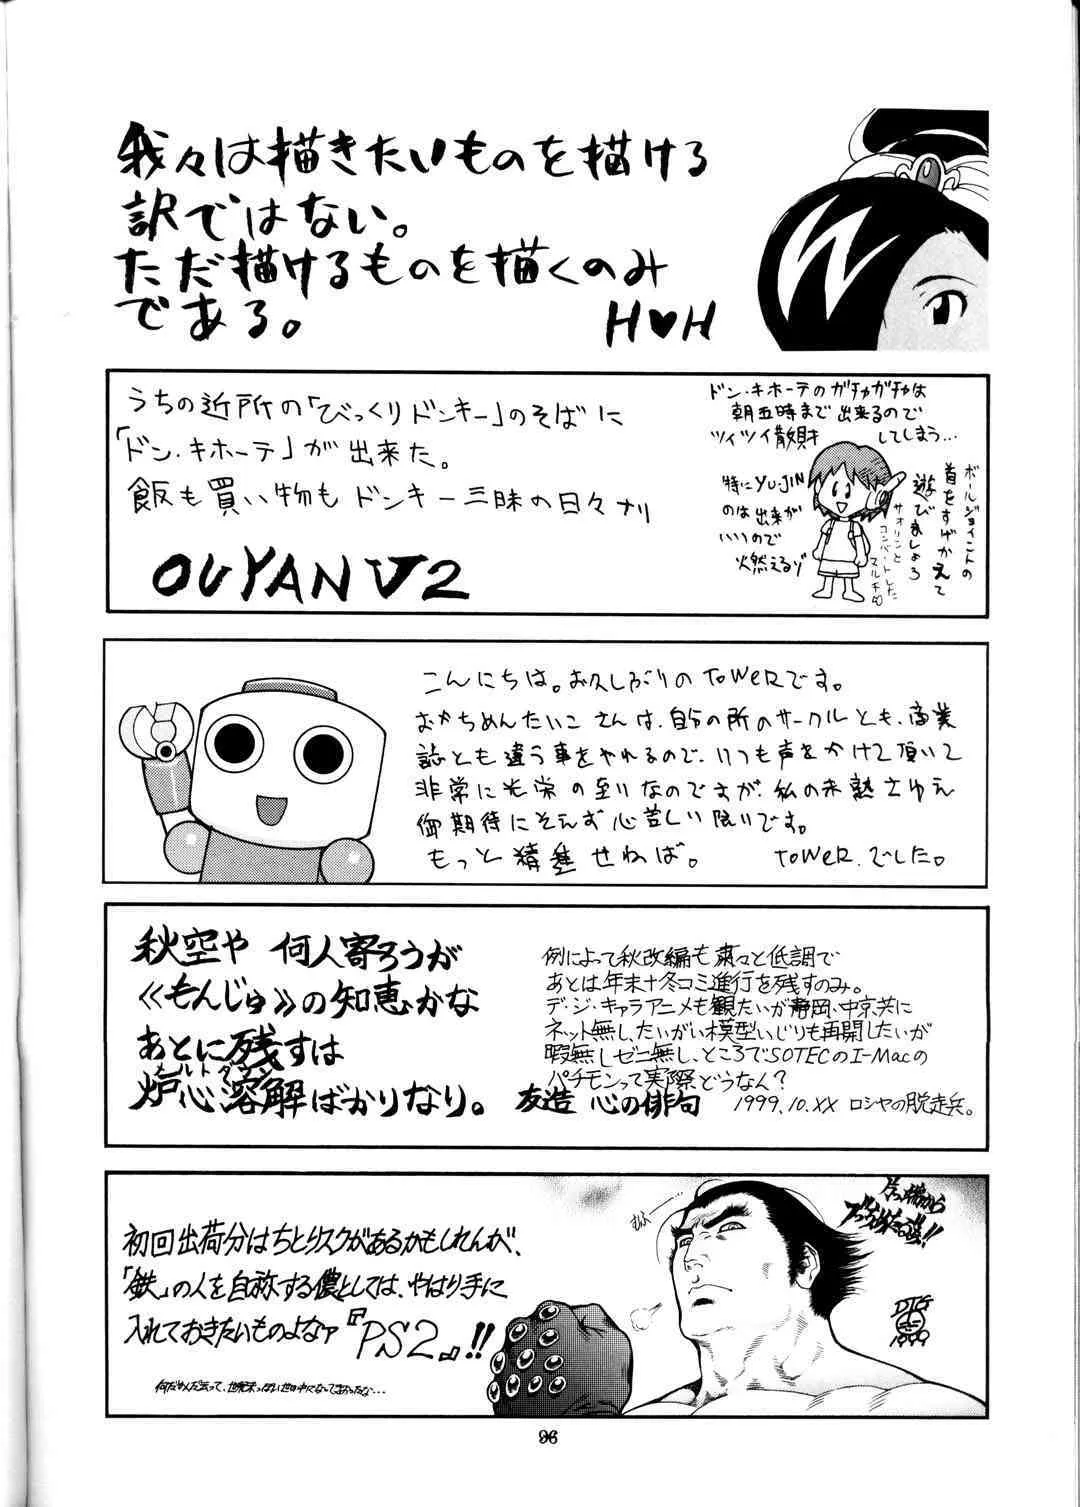 我々は描きたいものを描ける
訳ではない。
ただ描けるものを描くのみ
である。
H♥H
うちの近所の「びっくりドンキー」のそばに
「ドン・キホーテ」が出来た。
飯も買い物もドンキー三昧の日々ナリ
OUYAN V2
ドン・キホーテのガチャガチャは
朝五時まで出来るので
ツイツイ散財してしまう…
特にYUJIN
のは出来が
いいので
火然えるゾ
ボールジョイントの
首をすげかえて
遊びましょろ
サオリンと
コンバートした
マルチ
こんにちは。お久しぶりのToWeRです。
おかちめんたいこさんは、自分の所のサークルとも、商業
誌とも違う事をやれるので、いつも声をかけて頂いて
非常に光栄の至りなのですが、私の未熟さゆえ
御期待にそえず心苦しい限りです。
もっと精進せねば。
ToWeR.でした。
秋空や 何人寄ろうが
《もんじゅ》の知恵かな
あとに残すは
メルトダウン
炉心溶解ばかりなり。
友造 心の俳句
例によって秋改編も粛々と低調で
あとは年末+冬コミ進行を残すのみ。
デ・ジ・キャラアニメも観たいが静岡、中京共に
ネット無し、たいがい模型いじりも再開したいが
暇無しゼニ無し、ところでSOTECのI-Macの
パチモンって実際どうなん?
1999.10.XX ロシヤの脱走兵。
初回出荷分はちとリスクがあるかもしれんが、
「鉄」の人を自称する儂としては、やはり手に
入れておきたいものよなァ『PS2』!!
96